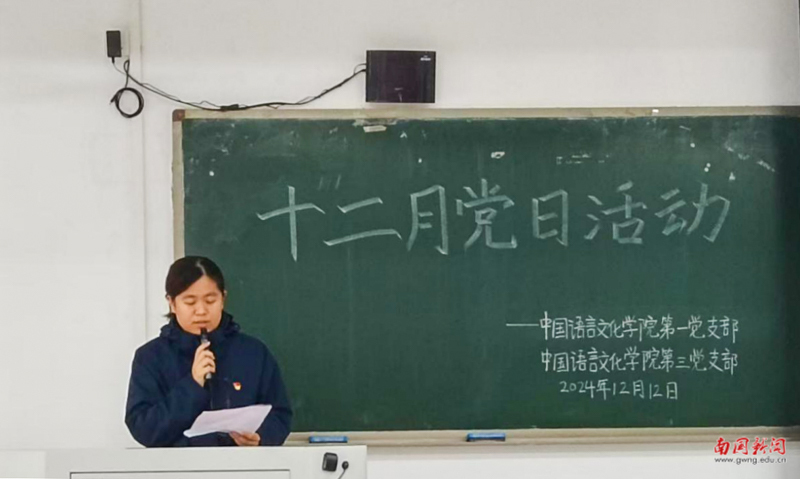 十二月党日活动
——中国语言文化学院第一党支部
中国语言文化学院第三党支部
2024年12月12日
南国新闻
www.gwng.edu.cn